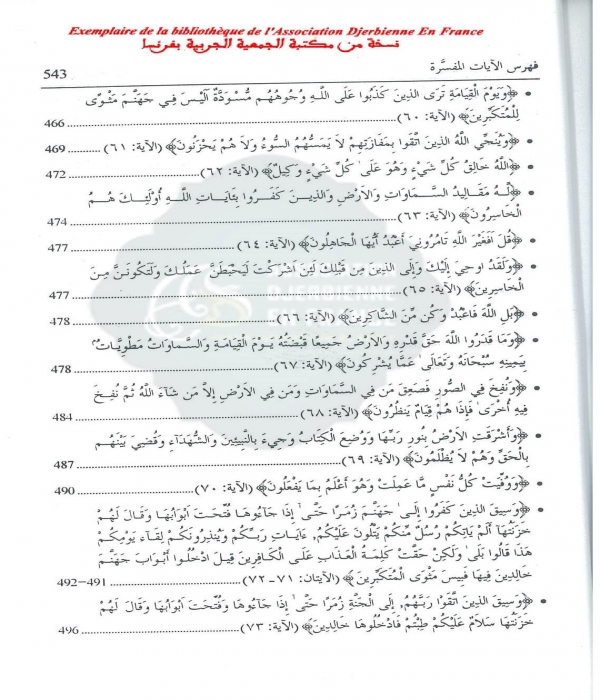 Exemplaire de la bibliothèque de l'Association Djerbienne En France
نسخة من مكتبة الجمعية الجربية بفرنسا
فهرس الآيات المفسَّرة 543
• ﴿وَيَوْمَ الْقِيَامَةِ تَرَى الذِينَ كَذَبُوا عَلَى اللَّهِ وُجُوهُهُم مُّسْوَدَّةٌ اَلَيْسَ فِي جَهَنَّمَ مَثْوًى
لِّلْمُتَكَبِّرِينَ﴾ (الآية: ٦٠) 466
• ﴿وَيُنَجِّي اللَّهُ الذِينَ اتَّقَوْا بِمَفَازَتِهِمْ لاَ يَمَسُّهُمُ السُّوءُ وَلاَ هُمْ يَحْزَنُونَ﴾ (الآية: ٦١) 469
• ﴿اللَّهُ خَالِقُ كُلِّ شَيْءٍ وَهُوَ عَلَىٰ كُلِّ شَيْءٍ وَكِيلٌ﴾ (الآية: ٦٢) 472
• ﴿لَّهُ مَقَالِيدُ السَّمَاوَاتِ وَالاَرْضِ وَالذِينَ كَفَرُوا بِئَايَاتِ اللَّهِ أُوْلَئِكَ هُمُ
الْخَاسِرُونَ﴾ (الآية: ٦٣) 474
• ﴿قُلَ اَفَغَيْرَ اللَّهِ تَامُرُونِيَ أَعْبُدُ أَيُّهَا الْجَاهِلُونَ﴾ (الآية: ٦٤) 477
• ﴿وَلَقَدُ اوحِيَ إِلَيْكَ وَإِلَى الذِينَ مِن قَبْلِكَ لَئِنَ اَشْرَكْتَ لَيَحْبَطَنَّ عَمَلُكَ وَلَتَكُونَنَّ مِنَ
الْخَاسِرِينَ﴾ (الآية: ٦٥) 477
• ﴿بَلِ اللَّهَ فَاعْبُدْ وَكُن مِّنَ الشَّاكِرِينَ﴾ (الآية: ٦٦) 478
• ﴿وَمَا قَدَرُوا اللَّهَ حَقَّ قَدْرِهِ وَالاَرْضُ جَمِيعًا قَبْضَتُهُ يَوْمَ الْقِيَامَةِ وَالسَّمَاوَاتُ مَطْوِيَّاتٌ
بِيَمِينِهِ سُبْحَانَهُ وَتَعَالَىٰ عَمَّا يُشْرِكُونَ﴾ (الآية: ٦٧) 478
• ﴿وَنُفِخَ فِي الصُّورِ فَصَعِقَ مَن فِي السَّمَاوَاتِ وَمَن فِي الاَرْضِ إِلاَّ مَن شَآءَ اللَّهُ ثُمَّ نُفِخَ
فِيهِ أُخْرَىٰ فَإِذَا هُمْ قِيَامٌ يَنظُرُونَ﴾ (الآية: ٦٨) 484
• ﴿وَأَشْرَقَتِ الاَرْضُ بِنُورِ رَبِّهَا وَوُضِعَ الْكِتَابُ وَجِيءَ بِالنَّبِيئِينَ وَالشُّهَدَآءِ وَقُضِيَ بَيْنَهُم
بِالْحَقِّ وَهُمْ لاَ يُظْلَمُونَ﴾ (الآية: ٦٩) 487
• ﴿وَوُفِّيَتْ كُلُّ نَفْسٍ مَّا عَمِلَتْ وَهُوَ أَعْلَمُ بِمَا يَفْعَلُونَ﴾ (الآية: ٧٠) 490
• ﴿وَسِيقَ الذِينَ كَفَرُوا إِلَىٰ جَهَنَّمَ زُمَرًا حَتَّىٰ إِذَا جَآءُوهَا فُتِّحَتَ اَبْوَابُهَا وَقَالَ لَهُمْ
خَزَنَتُهَا أَلَمْ يَاتِكُمْ رُسُلٌ مِّنكُمْ يَتْلُونَ عَلَيْكُمُ, ءَايَاتِ رَبِّكُمْ وَيُنذِرُونَكُمْ لِقَاءَ يَوْمِكُمْ
هَذَا قَالُوا بَلَىٰ وَلَكِنْ حَقَّتْ كَلِمَةُ الْعَذَابِ عَلَى الْكَافِرِينَ قِيلَ ادْخُلُوا أَبْوَابَ جَهَنَّمَ
خَالِدِينَ فِيهَا فَبِيسَ مَثْوَى الْمُتَكَبِّرِينَ﴾ (الآيتان: ٧١-٧٢) 491-492
• ﴿وَسِيقَ الذِينَ اتَّقَوْا رَبَّهُمُ, إِلَى الْجَنَّةِ زُمَرًا حَتَّىٰ إِذَا جَآءُوهَا وَفُتِّحَتَ اَبْوَابُهَا وَقَالَ لَهُمْ
خَزَنَتُهَا سَلاَمٌ عَلَيْكُمْ طِبْتُمْ فَادْخُلُوهَا خَالِدِينَ﴾ (الآية: ٧٣) 496
DJERBIENNE